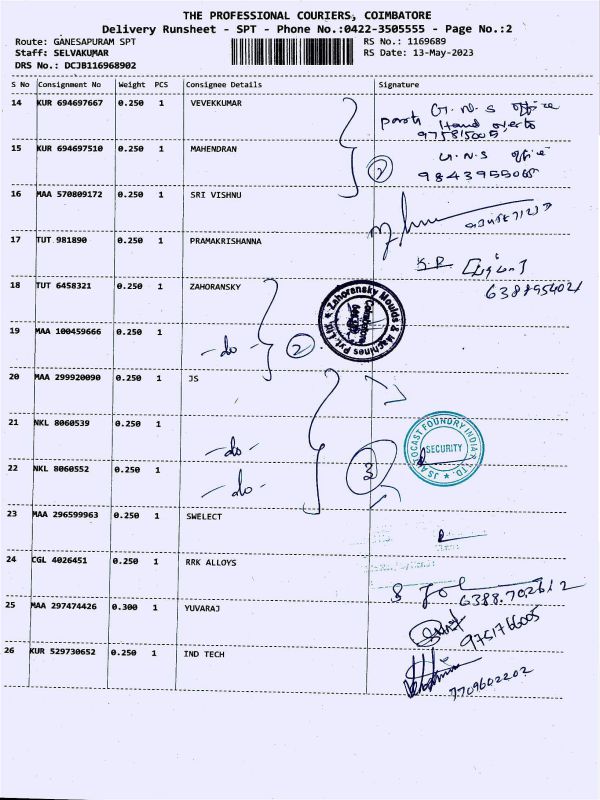 THE PROFESSIONAL COURIERS, COIMBATORE
Delivery Runsheet - SPT - Phone No.:0422-3505555 - Page No.:2
Route: GANESAPURAM SPT
RS No.: 1169689
Staff: SELVAKUMAR
RS Date: 13-May-2023
DRS No.: DCJB116968902
S No Consignment No Weight PCS Consignee Details Signature
14 KUR 694697667 0.250 1 VEVEKKUMAR
G.N.S office
Hand over to
15 KUR 694697510 0.250 1 MAHENDRAN
G.N.S office
2
16 MAA 570809172 0.250 1 SRI VISHNU
17 TUT 981890 0.250 1 PRAMAKRISHANNA
18 TUT 6458321 0.250 1 ZAHORANSKY
Zahoransky Moulds & Machines Pvt. Ltd.
Coimbatore
19 MAA 100459666 0.250 1 -do-
2
20 MAA 299920090 0.250 1 JS
21 NKL 8060539 0.250 1 -do-
JS AUTOCAST FOUNDRY INDIA P LTD.
SECURITY
22 NKL 8060552 0.250 1 -do-
3
23 MAA 296599963 0.250 1 SWELECT
24 CGL 4026451 0.250 1 RRK ALLOYS
6388.702612
25 MAA 297474426 0.300 1 YUVARAJ
9751766005
26 KUR 529730652 0.250 1 IND TECH
7709602202